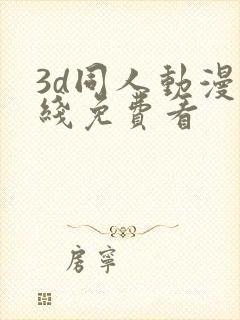 3d同人動漫
綫免費看
房寧